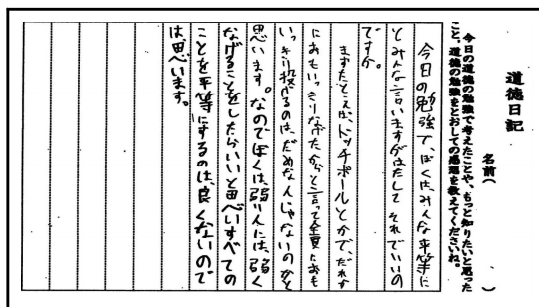 道徳日記
名前（　　　）
今日の道徳の勉強で考えたことや、もっと知りたいと思った
こと、道徳の勉強をとおしての感想を教えてくださいね。
今日の勉強で、ぼくはみんな平等に
とみんな言いますがはたして それでいいの
ですか。
まずたとえば、ドッチボールとかで、だれか
におもいっきりなげたからと言って全員におも
いっきり投げるのは、だめなんじゃないのかと
思います。なのでぼくは、弱い人には、弱く
なげることをしたらいいと思べいすべての
ことを平等にするのは、良くないので
は思べいます。